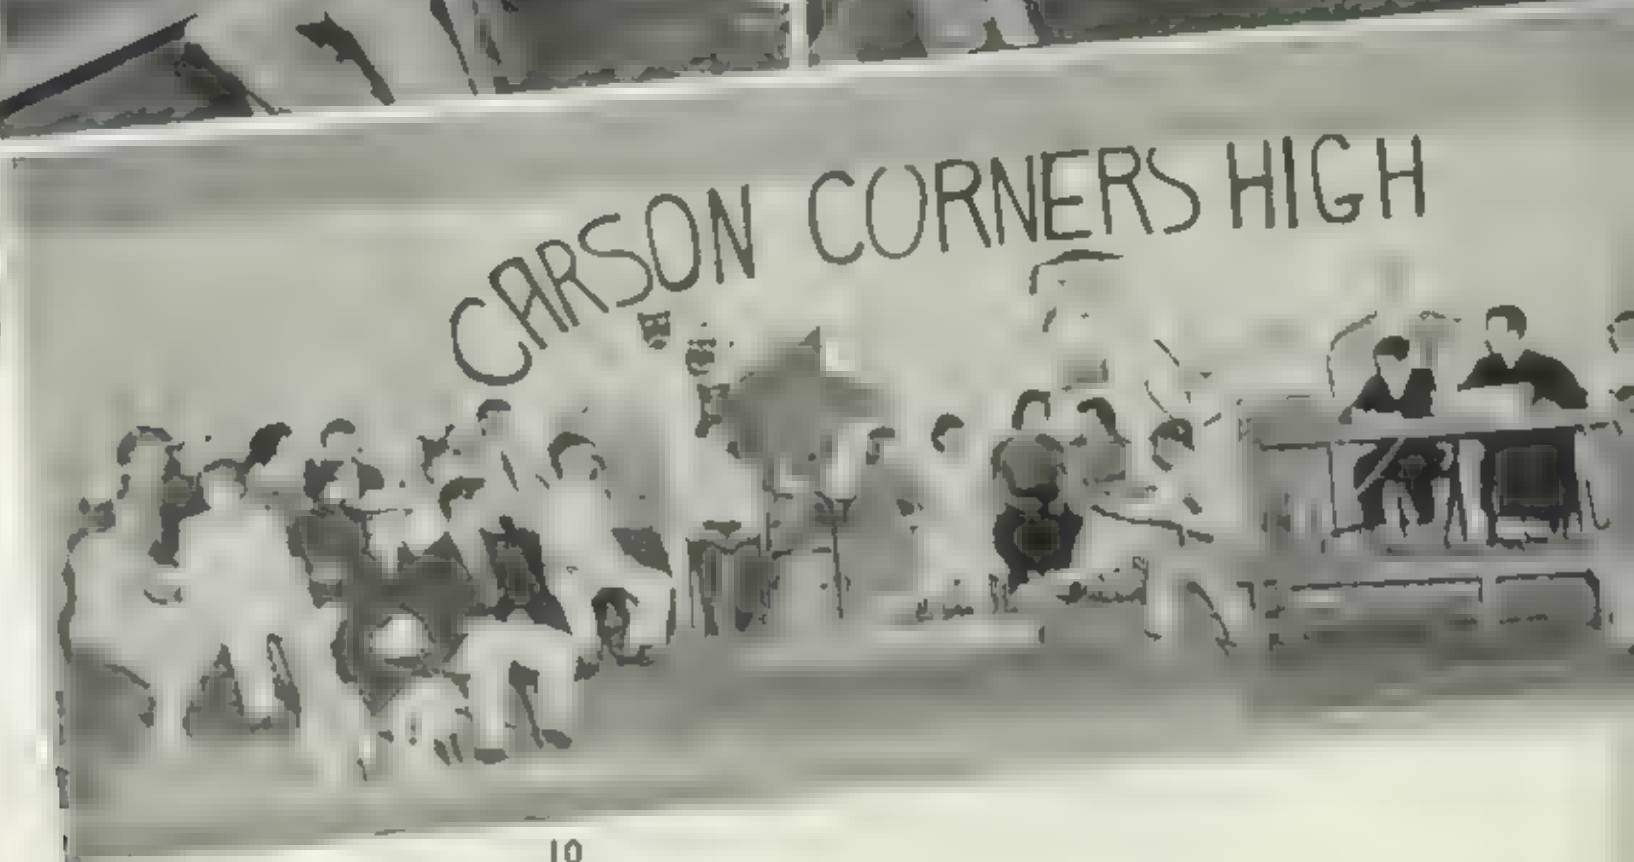 CARSON CORNERS HIGH
10